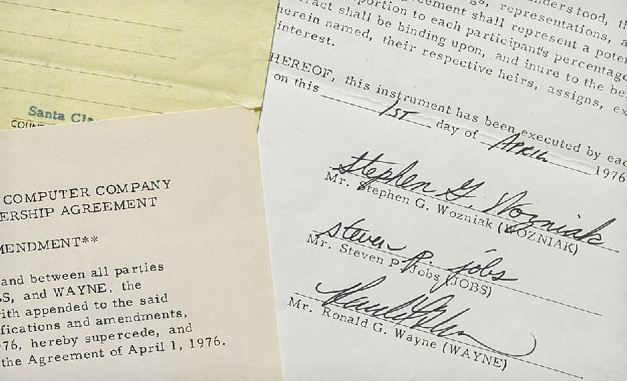 Santa Cla
COUN
COMPUTER COMPANY
ERSHIP AGREEMENT
MENDMENT**
and between all parties
BS, and WAYNE, the
ith appended to the said
fications and amendments,
76, hereby supercede, and
the Agreement of April 1, 1976.
representations, a
eement shall represent a poten
oportion to each participant's percentage
ract shall be binding upon, and inure to the be
herein named, their respective heirs, assigns, ex
interest.
HEREOF, this instrument has been executed by eac
on this 1ST day of APRIL 1976
Stephen G. Wozniak
Mr. Stephen G. Wozniak (WOZNIAK)
steven P. jobs
Mr. Steven P. Jobs (JOBS)
Mr. Ronald G. Wayne (WAYNE)